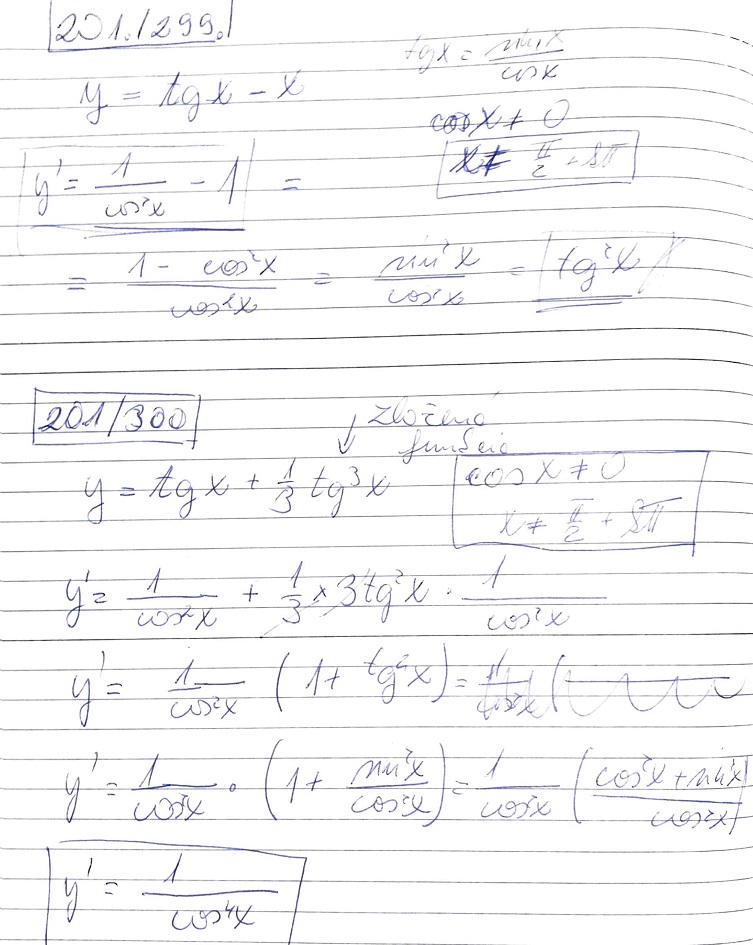 201./299.
tgx = sin x / cos x
y = tgx - x
cos x ≠ 0
x ≠ π/2 + kπ
y' = 1/cos²x - 1 =
= (1 - cos²x)/cos²x = sin²x/cos²x = tg²x
201/300
↓ zložená
funkcia
y = tgx + 1/3 tg³x
cos x ≠ 0
x ≠ π/2 + kπ
y' = 1/cos²x + 1/3 × 3 tg²x · 1/cos²x
y' = 1/cos²x (1 + tg²x) =
y' = 1/cos²x · (1 + sin²x/cos²x) = 1/cos²x ((cos²x + sin²x)/cos²x)
y' = 1/cos⁴x